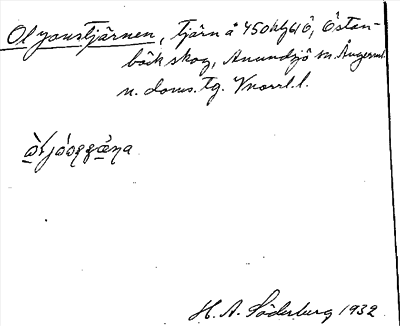 Oljonstjärnen, tjärn å 450 kfl 61 Ö, Östan-
bäck skog, Anundsjö sn. Ångerml.
n. doms. tg. Vnorrl. l.
H. A. Söderberg 1932